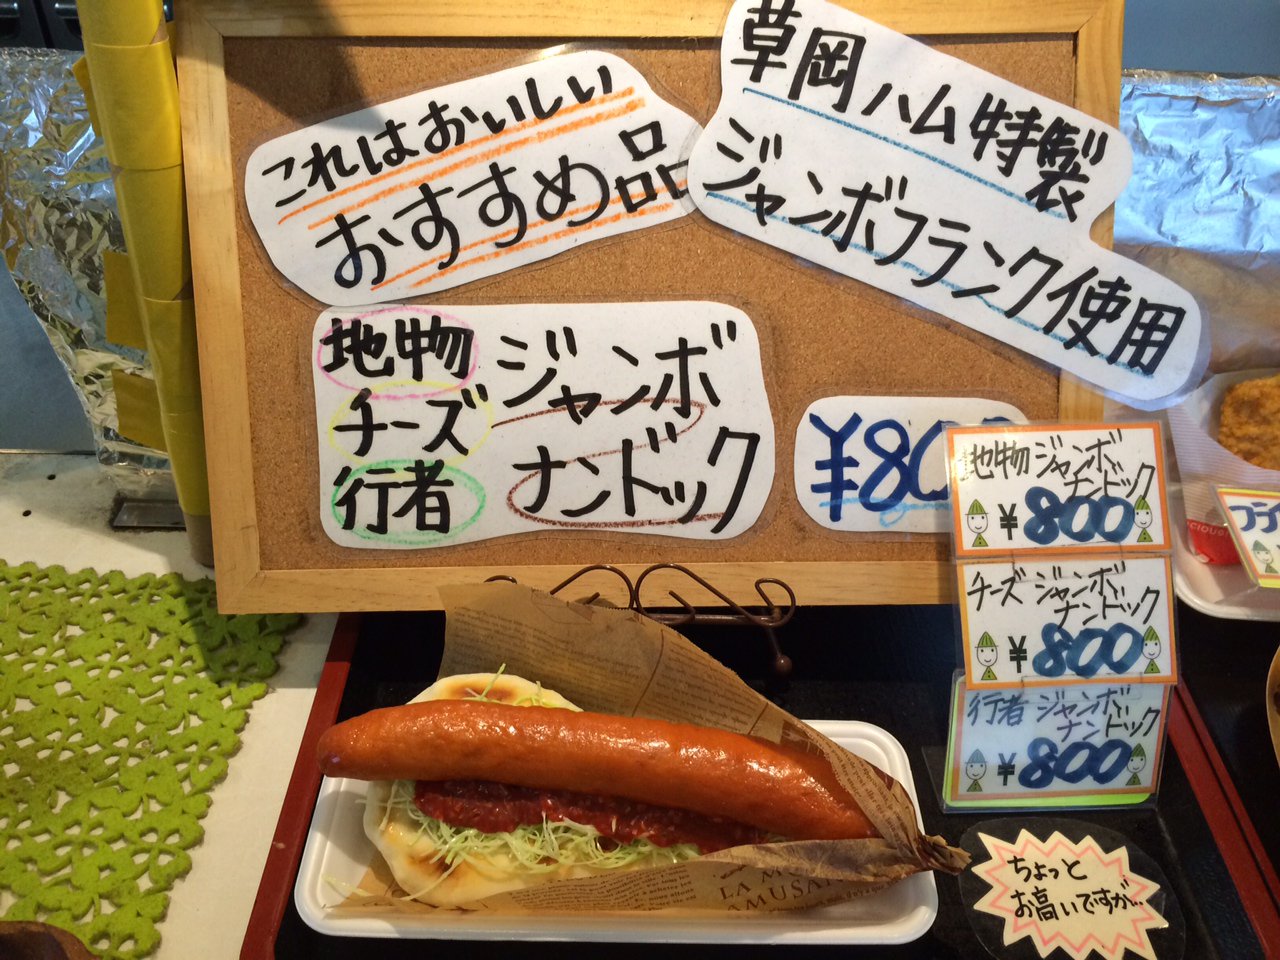 これはおいしい
おすすめ品
草岡ハム特製
ジャンボフランク使用
地物
チーズ
行者
ジャンボ
ナンドック
¥80
地物 ジャンボ
ナンドック
¥800
チーズ ジャンボ
ナンドック
¥800
行者 ジャンボ
ナンドック
¥800
ちょっと
お高いですが…
フラ
LA